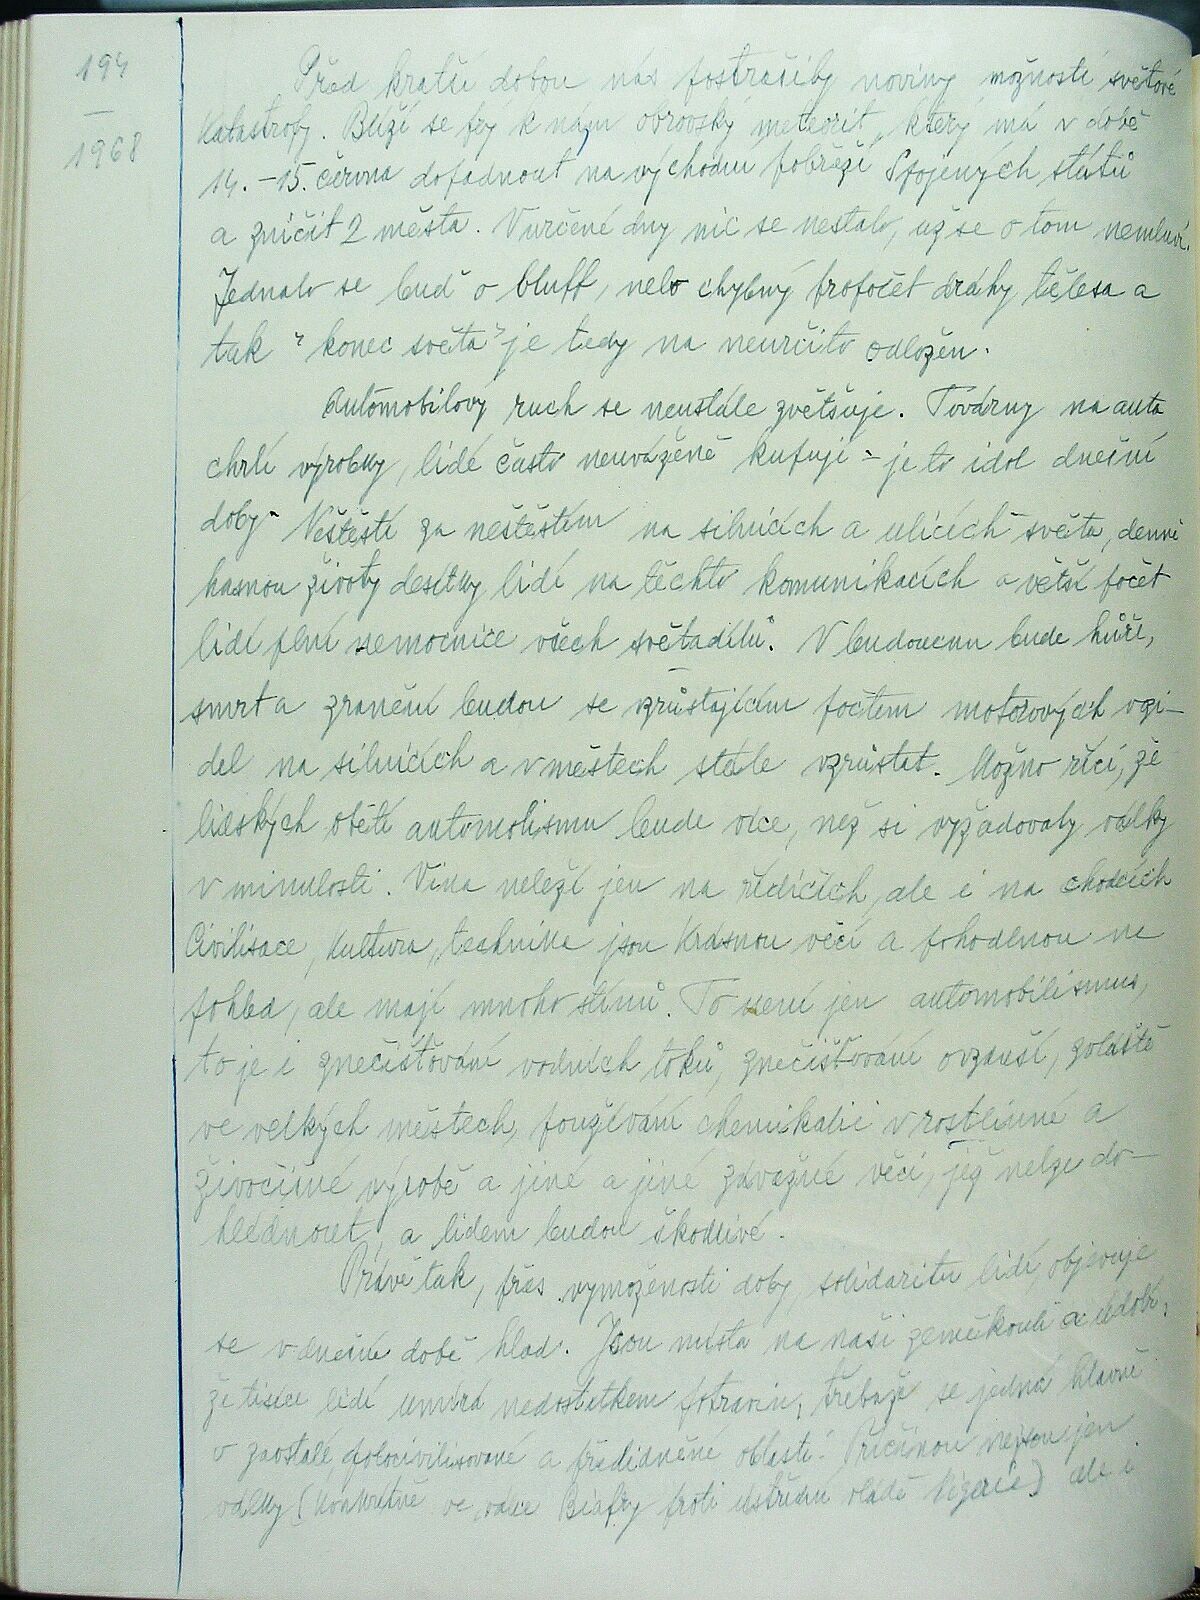 194
—
1968
Před kratší dobou nás postrašily noviny možností světové
katastrofy. Blíží se prý k nám obrovský meteorit, který má v době
14. – 15. června dopadnout na východní pobřeží Spojených států
a zničit 2 města. V určené dny nic se nestalo, už se o tom nemluví.
Jednalo se buď o bluff, nebo chybný propočet dráhy tělesa a
tak "konec světa" je tedy na neurčito odložen.
Automobilový ruch se neustále zvětšuje. Továrny na auta
chrlí výrobky, lidé často neuváženě kupují – je to idol dnešní
doby. Neštěstí za neštěstím na silnicích a ulicích světa, denně
hasnou životy desítky lidí na těchto komunikacích a větší počet
lidí plní nemocnice všech světadílů. V budoucnu bude hůře,
smrt a zranění budou se vzrůstajícím počtem motorových vozi-
del na silnicích a v městech stále vzrůstat. Možno říci, že
lidských obětí automobismu bude více, než si vyžádovaly války
v minulosti. Vina neleží jen na řidičích, ale i na chodcích
Civilisace, kultura, technika jsou krásnou věcí a pohodlnou na
pohled, ale mají mnoho stínů. To není jen automobilismus,
to je i znečišťování vodních toků, znečišťování ovzduší, zvláště
ve velkých městech, používání chemikalií v rostlinné a
živočišné výrobě a jiné a jiné závažné věci, jež nelze do-
hlédnout, a lidem budou škodlivé.
Právě tak, přes vymoženosti doby, solidaritu lidí, objevuje
se v dnešní době hlad. Jsou místa na naší zeměkouli a údobí,
že tisíce lidí umírá nedostatkem potravin, třebaže se jedná hlavně
v zaostalé, polocivilisované a přelidněné oblasti. Příčinou nejsou jen
války (konkrétně ve válce Biafry proti ústřední vládě Nigerie) ale i